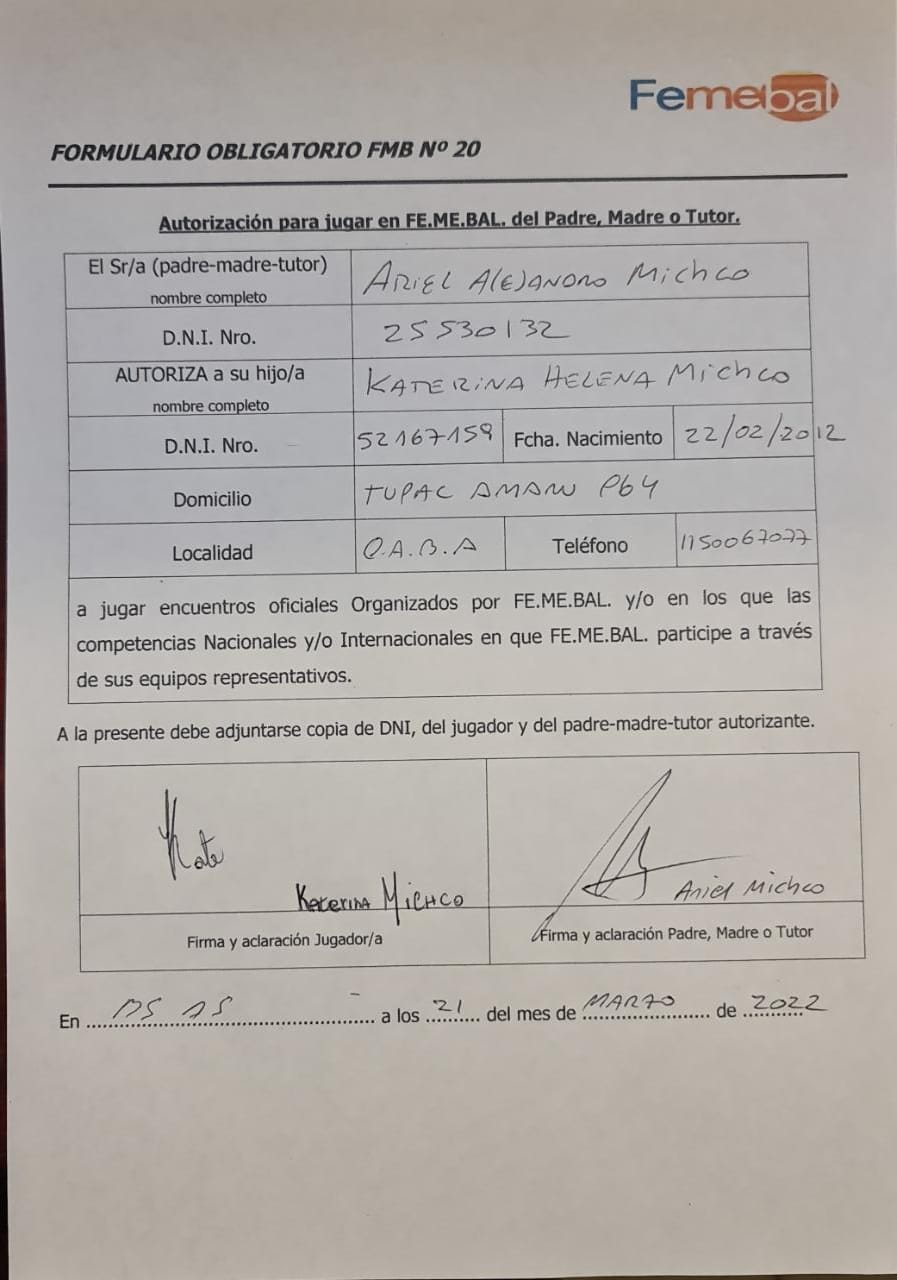 Femebal
FORMULARIO OBLIGATORIO FMB Nº 20
Autorización para jugar en FE.ME.BAL. del Padre, Madre o Tutor.
El Sr/a (padre-madre-tutor) ARIEL AlEJANDRO Michco
nombre completo
D.N.I. Nro. 25530132
AUTORIZA a su hijo/a KATERINA HELENA Michco
nombre completo
D.N.I. Nro. 52167159 Fcha. Nacimiento 22/02/2012
Domicilio TUPAC AMARU P64
Localidad C.A.B.A Teléfono 1150067077
a jugar encuentros oficiales Organizados por FE.ME.BAL. y/o en los que las
competencias Nacionales y/o Internacionales en que FE.ME.BAL. participe a través
de sus equipos representativos.
A la presente debe adjuntarse copia de DNI, del jugador y del padre-madre-tutor autorizante.
Kate
Katerina MICHCO Ariel Michco
Firma y aclaración Jugador/a Firma y aclaración Padre, Madre o Tutor
En BS AS a los 21 del mes de MARZO de 2022